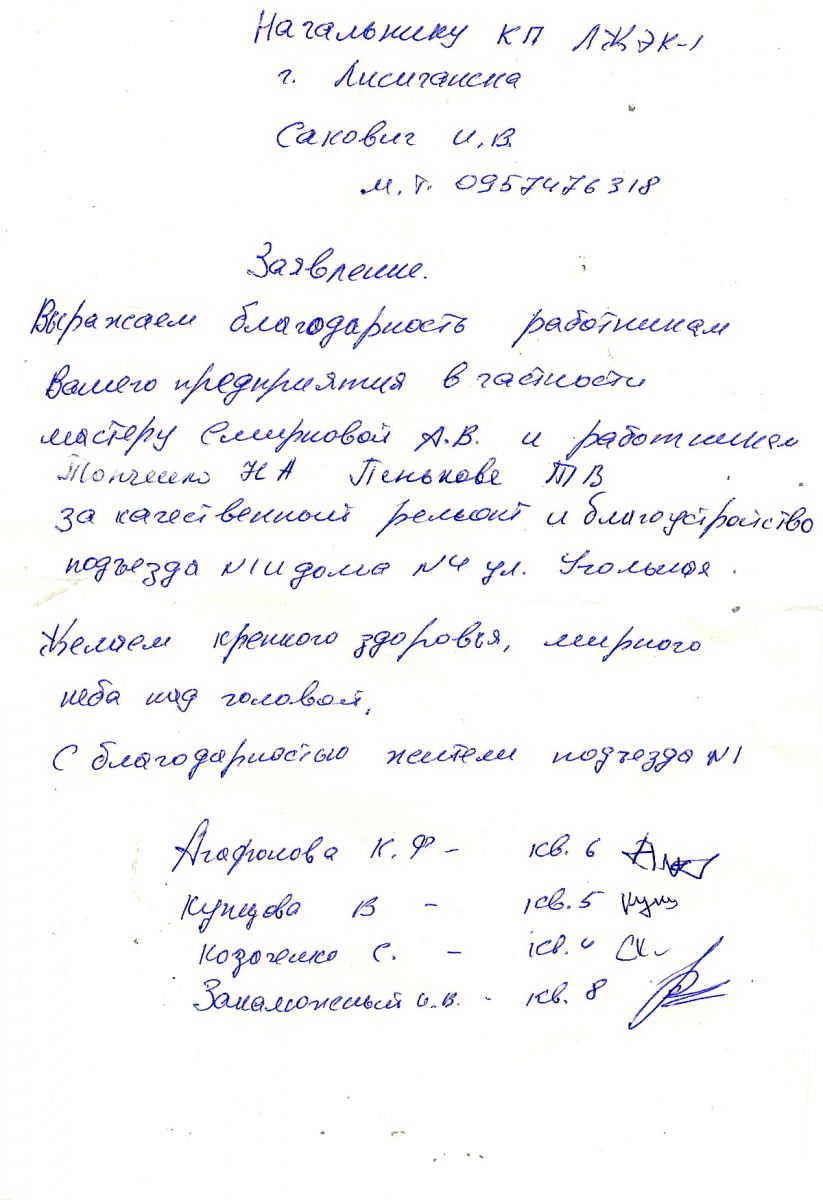 Начальнику КП ЛЖЭК-1
г. Лисичанска
Сакович И.В.
м.т. 0957476318
Заявление.
Выражаем благодарность работникам
Вашего предприятия в частности
мастеру Смирновой А.В. и работникам
Тонченко Н А Пенькове Т В
за качественный ремонт и благоустройство
подъезда N1 дома N4 ул. Угольная.
Желаем крепкого здоровья, мирного
неба над головой.
С благодарностью жители подъезда N1
Агафонова К.Ф – кв. 6
Купцова В – кв. 5 Купц
Козаченко С. – кв. 4 СК
Занаможный И.В. - кв. 8